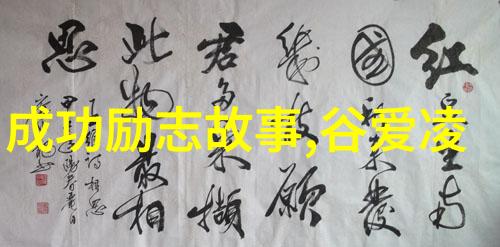 红豆生南
國春来發
幾枝願
君多采撷
此物最相
思
成功励志故事,谷爱凌